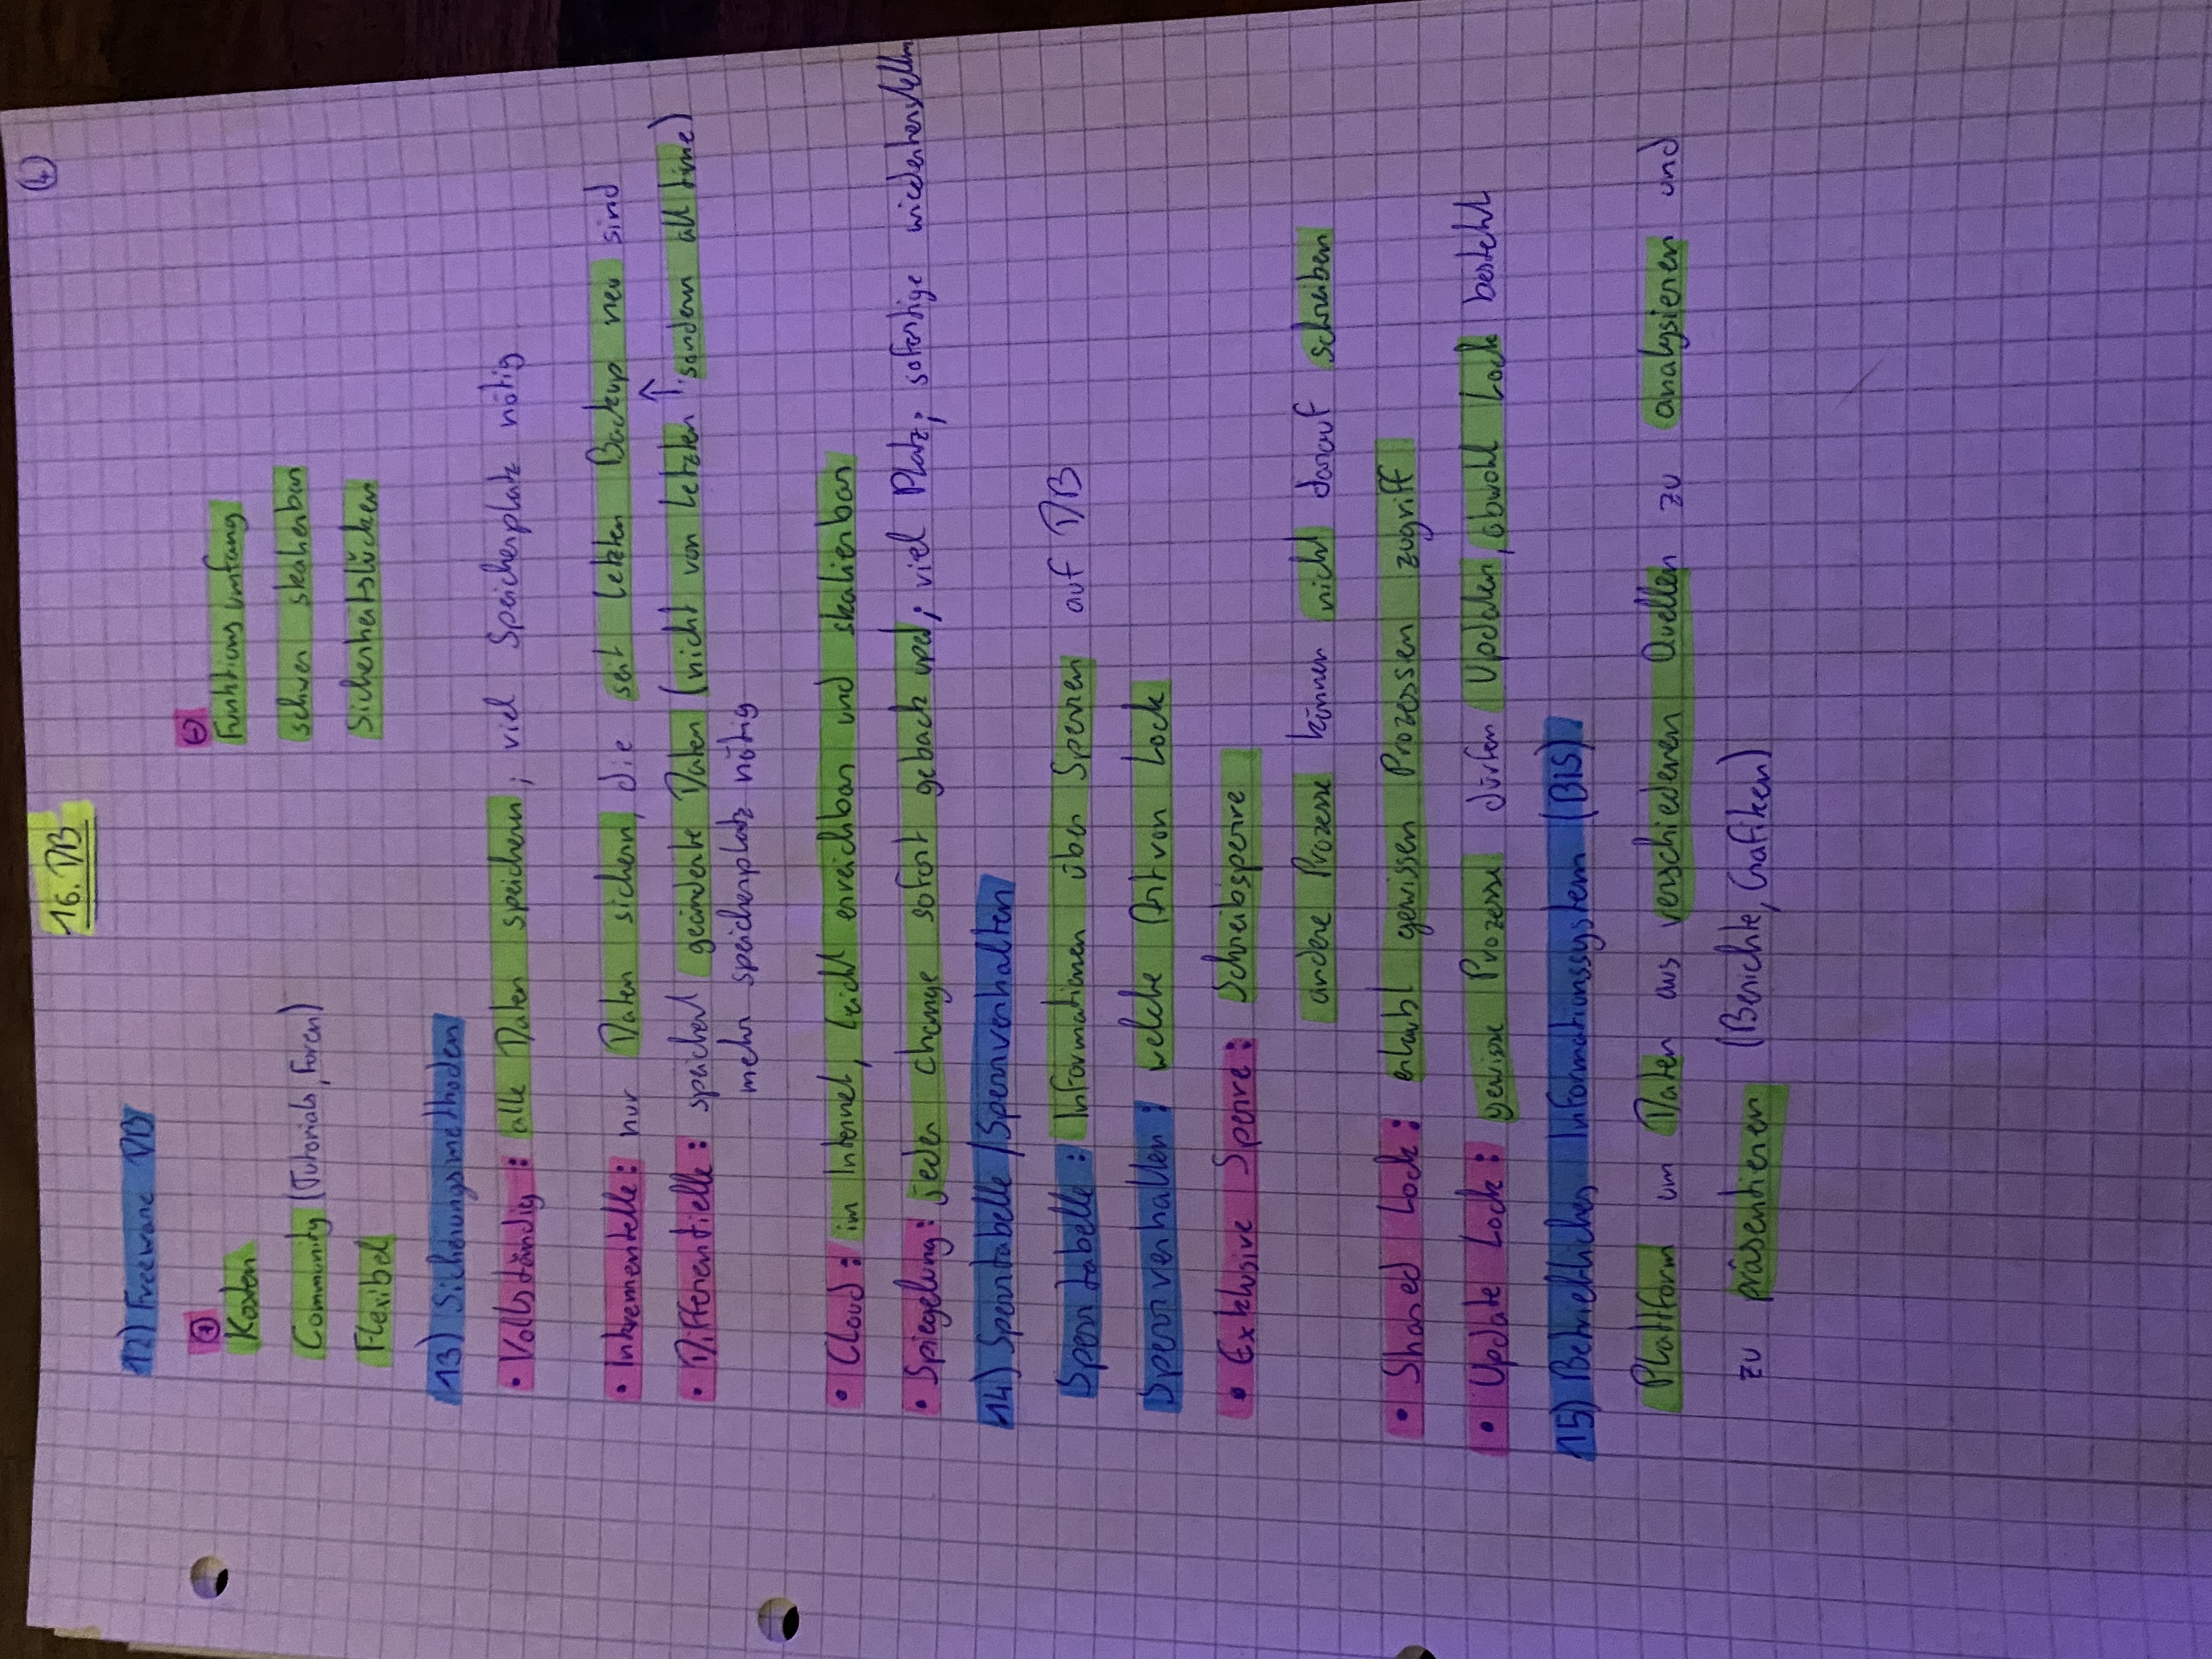 16. DB
4
12) Freeware DB
+
-
Kosten
Funktionsumfang
Community (Tutorials, Foren)
schwer skalierbar
Flexibel
Sicherheitslücken
13) Sicherungsmethoden
• Vollständig: alle Daten speichern; viel Speicherplatz nötig
• Inkrementelle: nur Daten sichern, die seit letzten Backup neu sind
• Differentielle: speichert geänderte Daten (nicht von letzten ↑, sondern all time)
mehr speicherplatz nötig
• Cloud: im Internet, leicht erreichbar und skalierbar
• Spiegelung: jeder change sofort geback uped; viel Platz; sofortige wiederherstellen
14) Sperrtabelle / Sperrverhalten
Sperrtabelle: Informationen über Sperren auf DB
Sperrverhalten: welche Art von Lock
• Exklusive Sperre: Schreibsperre
andere Prozesse können nicht darauf schreiben
• Shared Lock: erlaubt gewissen Prozessen zugriff
• Update Lock: gewisse Prozesse dürfen Updaten, obwohl Lock besteht
15) Betriebliches Informationssystem (BIS)
Plattform um Daten aus verschiedenen Quellen zu analysieren und
zu präsentieren (Berichte, Grafiken)